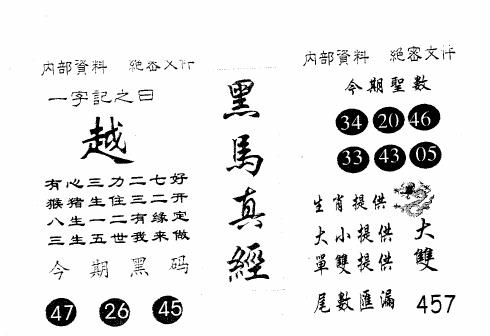 内部資料 絕密文件
一字記之曰
越
有心三生力二三七好
猴猪生一住二有二开
八生一二三缘定
三生五世我來做
今期黑码
47 26 45
黑馬真經
内部資料 絕密文件
今期聖數
34 20 46
33 43 05
生肖提供
大小提供 大
單雙提供 雙
尾數匯漏 457